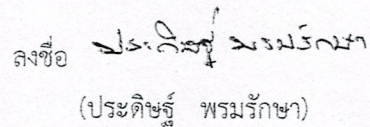 ลงชื่อ ประดิษฐ์ พรมรักษา
(ประดิษฐ์ พรมรักษา)